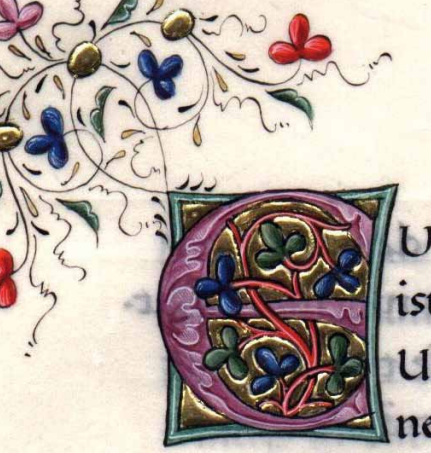 E U
ist
U
ne